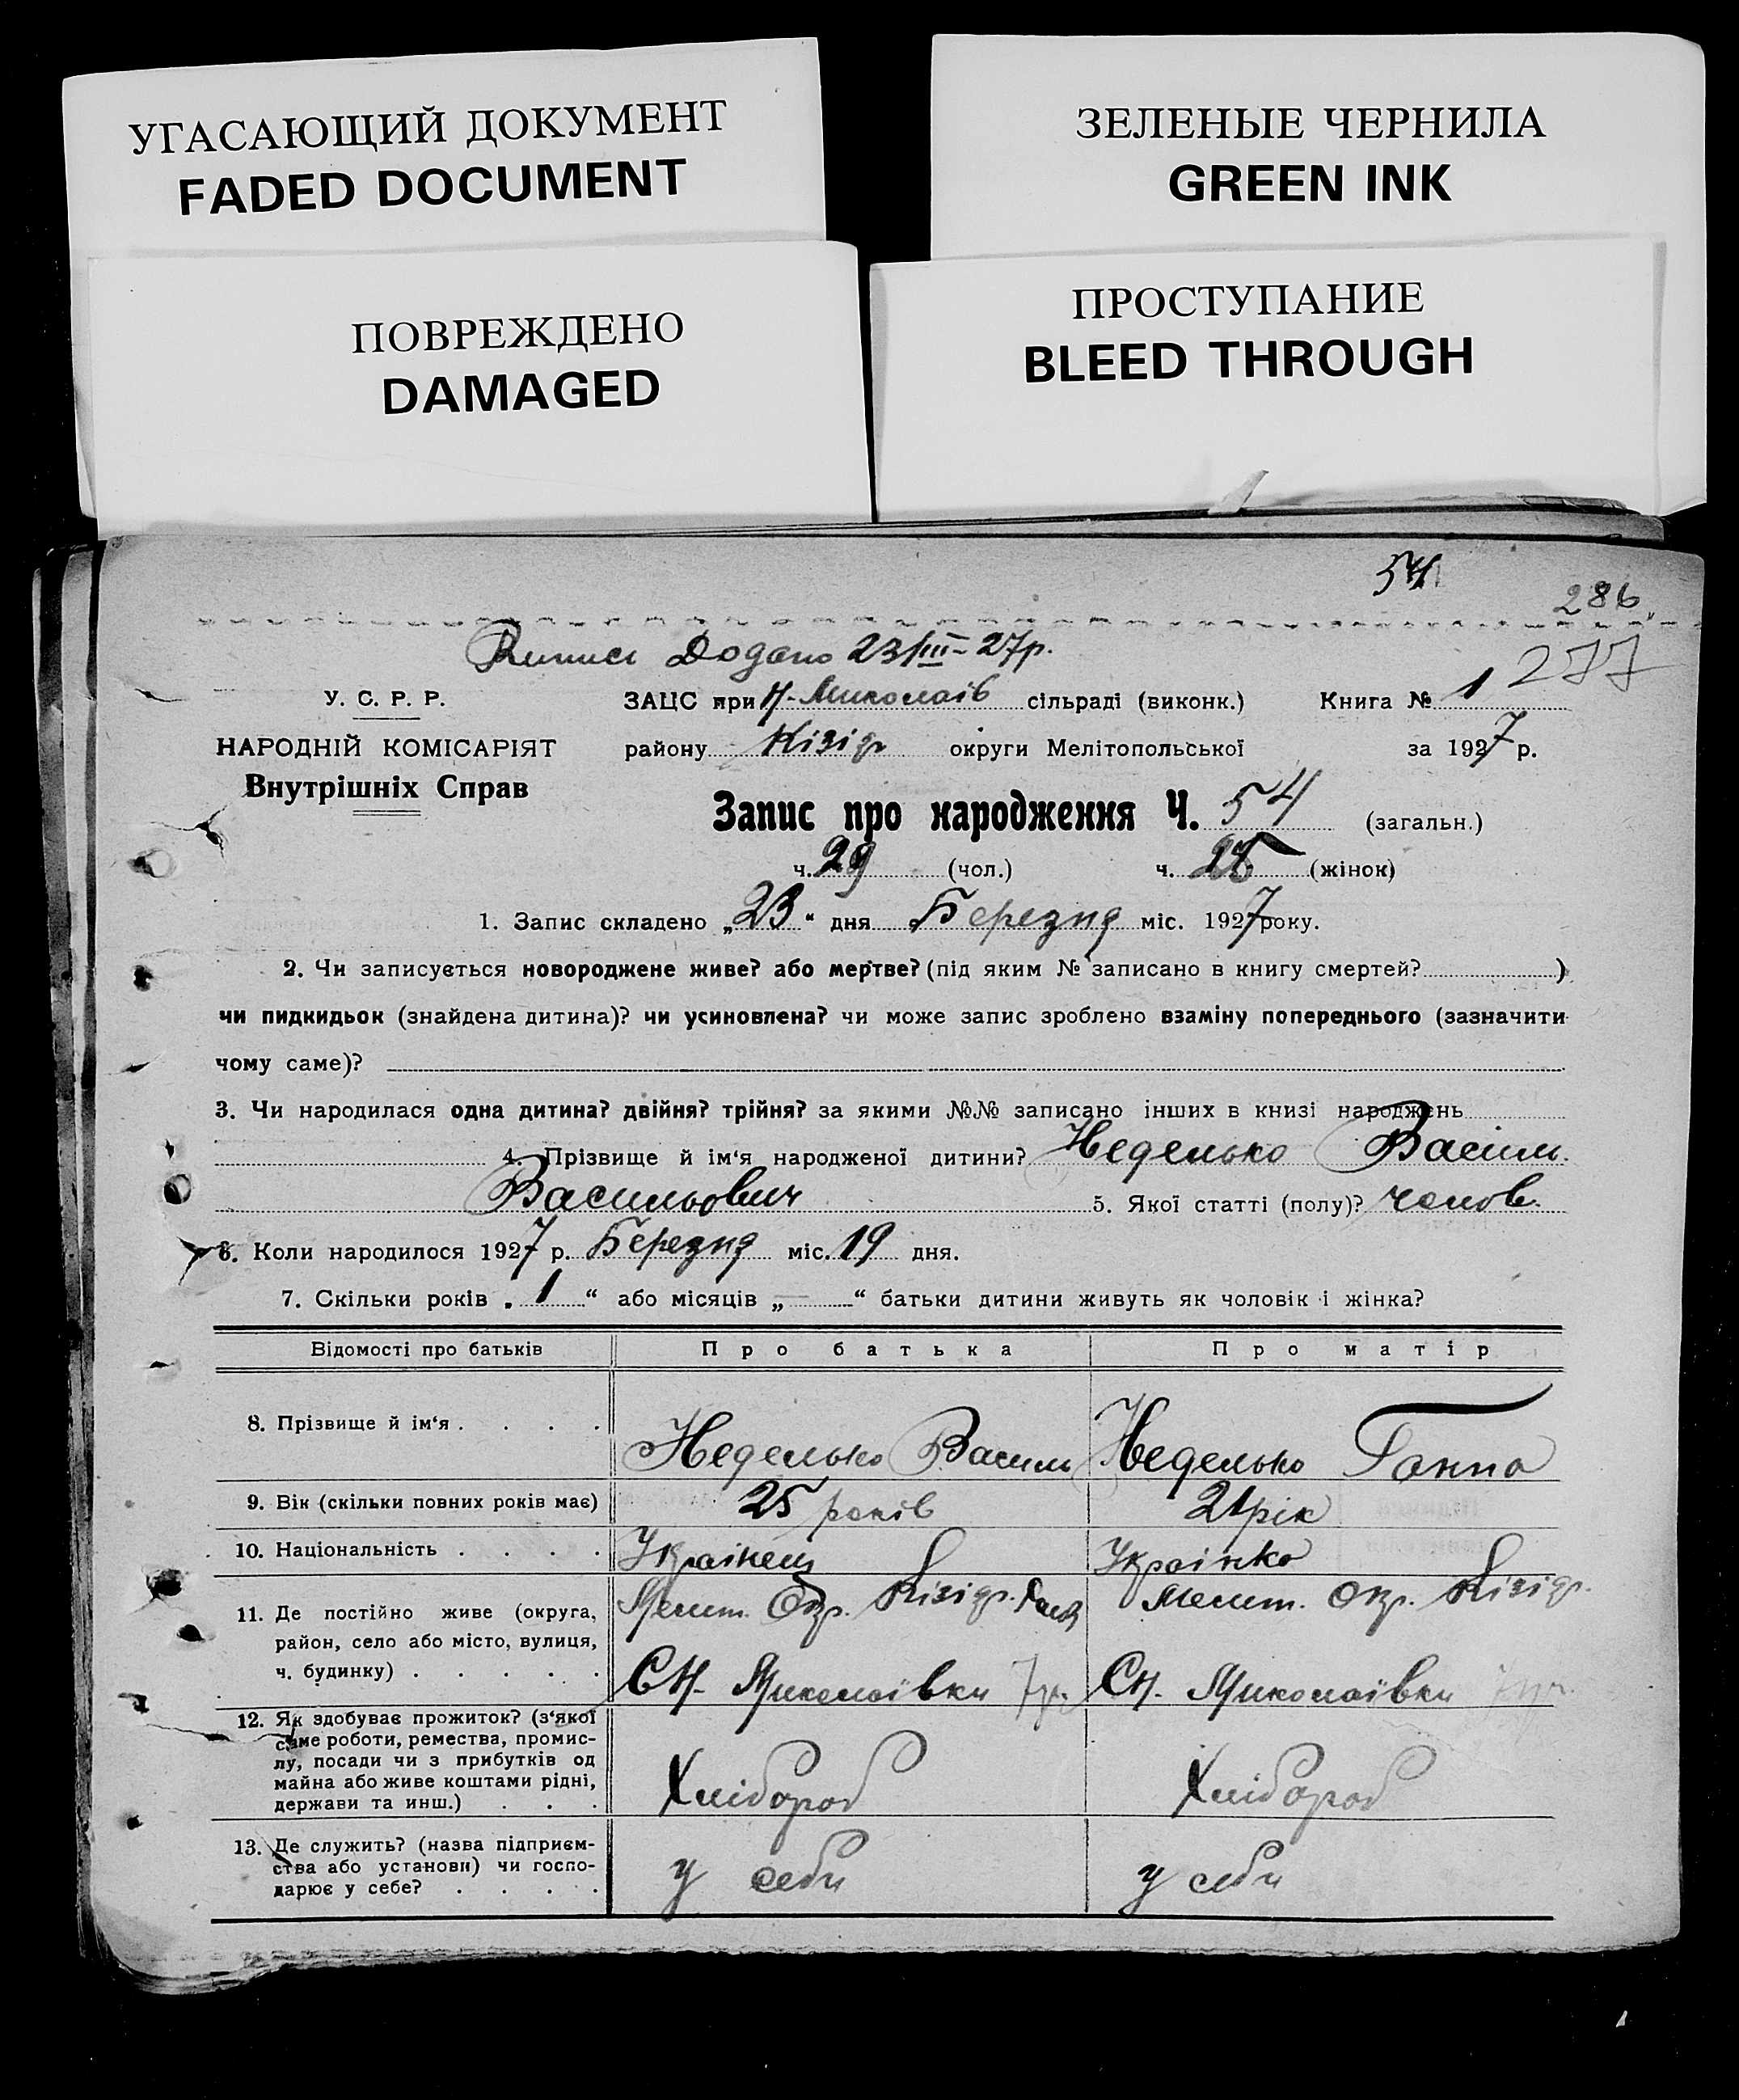 УГАСАЮЩИЙ ДОКУМЕНТ
FADED DOCUMENT
ЗЕЛЕНЫЕ ЧЕРНИЛА
GREEN INK
ПОВРЕЖДЕНО
DAMAGED
ПРОСТУПАНИЕ
BLEED THROUGH
54
286
Випись Додано 23/III-27р.
277
У. С. Р. Р.
ЗАЦС при Н-Миколаів сільраді (виконк.) Книга № 1
НАРОДНІЙ КОМІСАРІЯТ
району Кізіяр округи Мелітопольської за 1927 р.
Внутрішніх Справ
Запис про народження Ч. 54 (загальн.)
ч. 29 (чол.) ч. 25 (жінок)
1. Запис складено „23“ дня Березня міс. 1927 року.
2. Чи записується новороджене живе? або мертве? (під яким № записано в книгу смертей? )
чи пидкидьок (знайдена дитина)? чи усиновлена? чи може запис зроблено взаміну попереднього (зазначити
чому саме)?
3. Чи народилася одна дитина? двійня? трійня? за якими №№ записано інших в книзі народжень
4. Прізвище й ім‘я народженої дитини? Неделько Васіль
Васильович 5. Якої статті (полу)? чолов.
6. Коли народилося 1927 р. Березня міс. 19 дня.
7. Скільки років „1“ або місяців „—“ батьки дитини живуть як чоловік і жінка?
Відомості про батьків Про батька Про матір
8. Прізвище й ім‘я . . . . Неделько Василь Неделько Ганна
9. Вік (скільки повних років має) 25 років 21 рік
10. Національність . . . . Українець Українка
11. Де постійно живе (округа, Меліт. Окр. Кізіяр. Меліт. Окр. Кізіяр.
район, село або місто, вулиця,
ч. будинку) . . . . . СН. Миколаївки СН. Миколаївки
12. Як здобуває прожиток? (з‘якої
саме роботи, ремества, промис-
лу, посади чи з прибутків од
майна або живе коштами рідні, Хлібороб Хлібороб
держави та инш.) . . .
13. Де служить? (назва підприєм-
ства або установи) чи госпо- у себи у себи
дарює у себе? . . . .